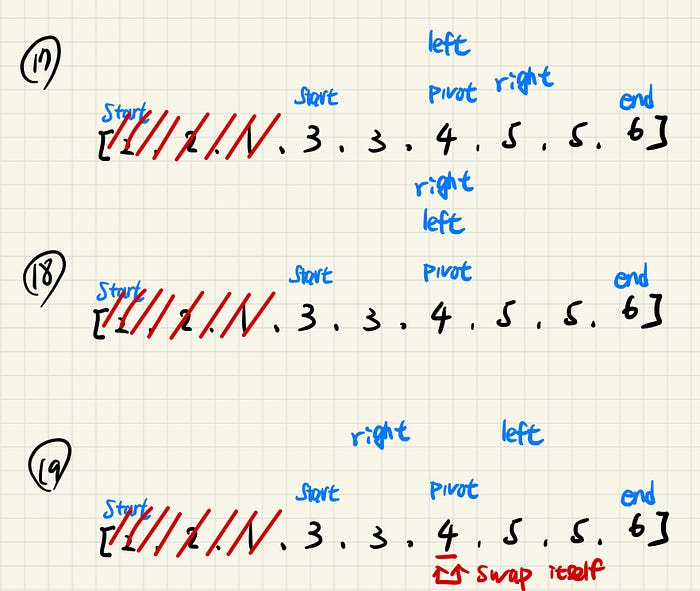 17
left
Start start pivot right end
[2. 2. 1. 3. 3. 4. 5. 5. 6]
right
left
18
Start start pivot end
[2. 2. 1. 3. 3. 4. 5. 5. 6]
right left
19
Start start pivot end
[2. 2. 1. 3. 3. 4. 5. 5. 6]
swap itself